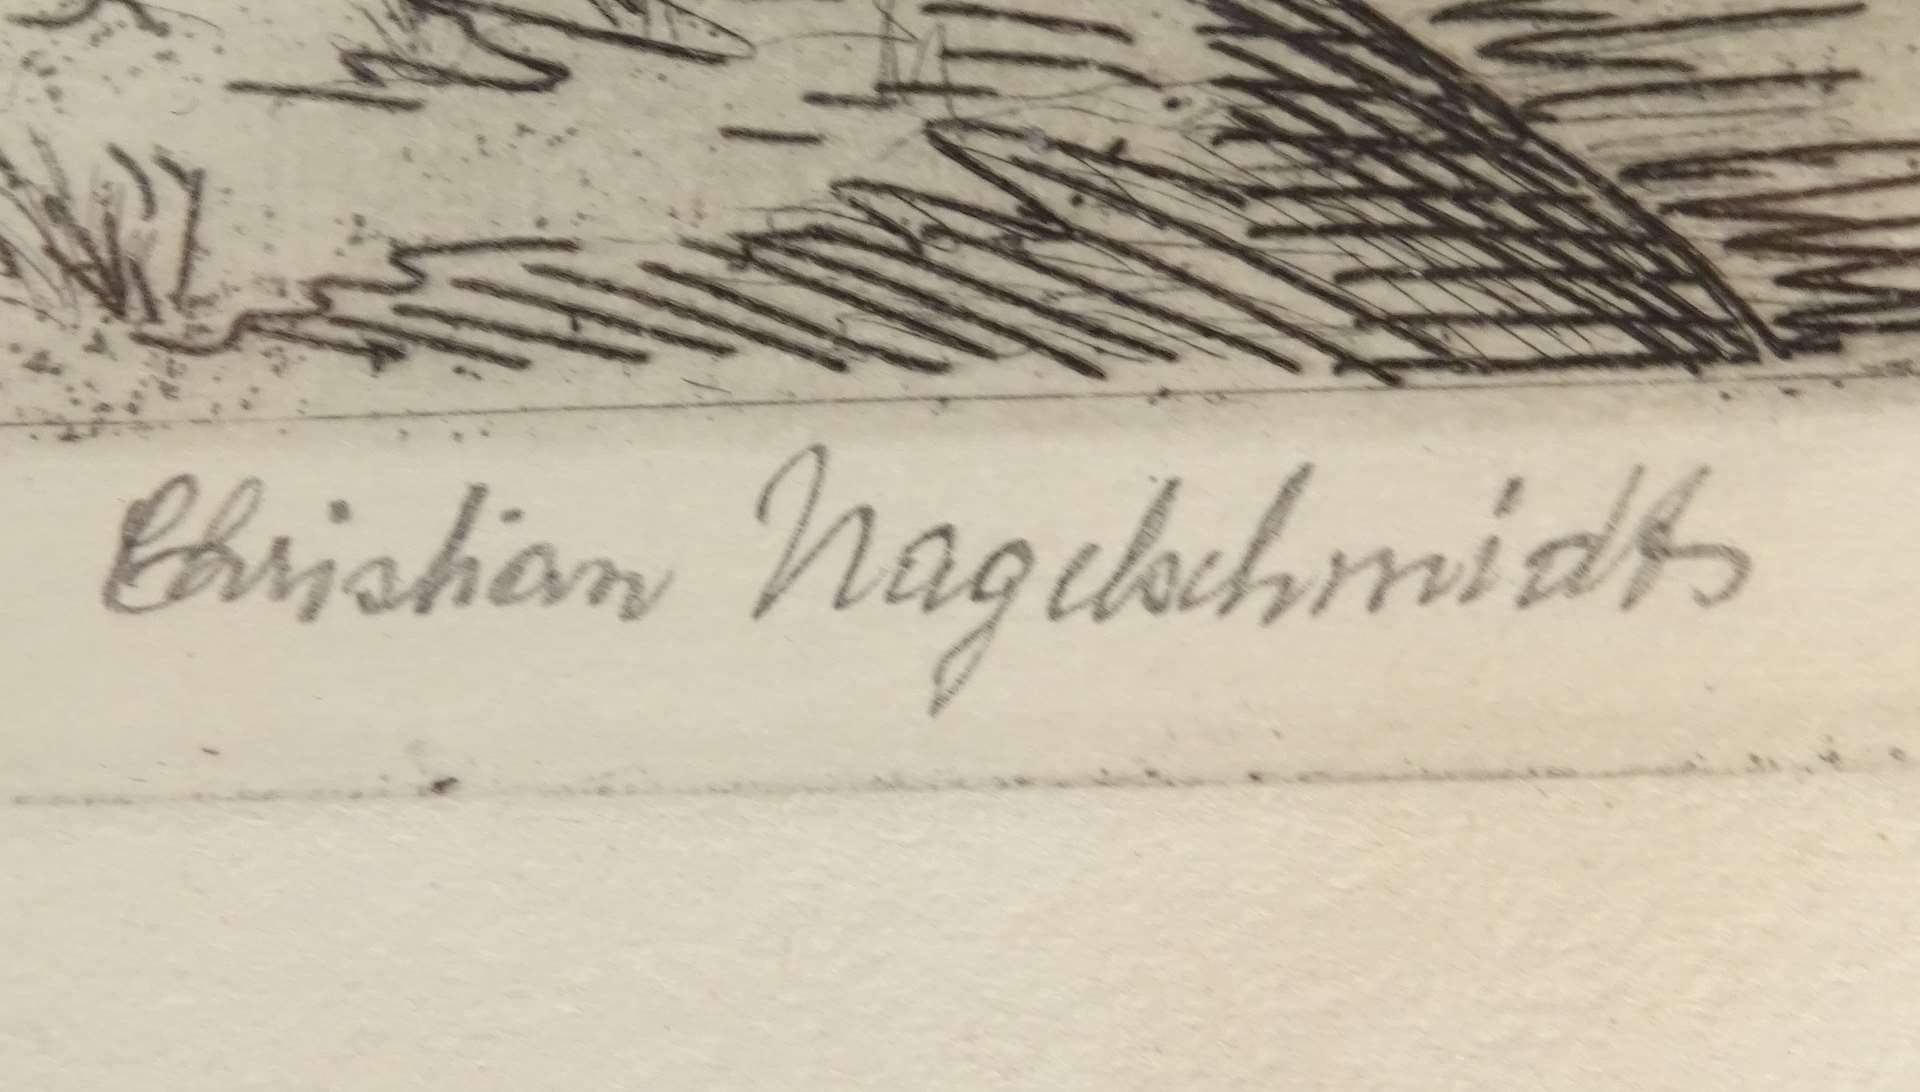 Christian Nagelschmidt